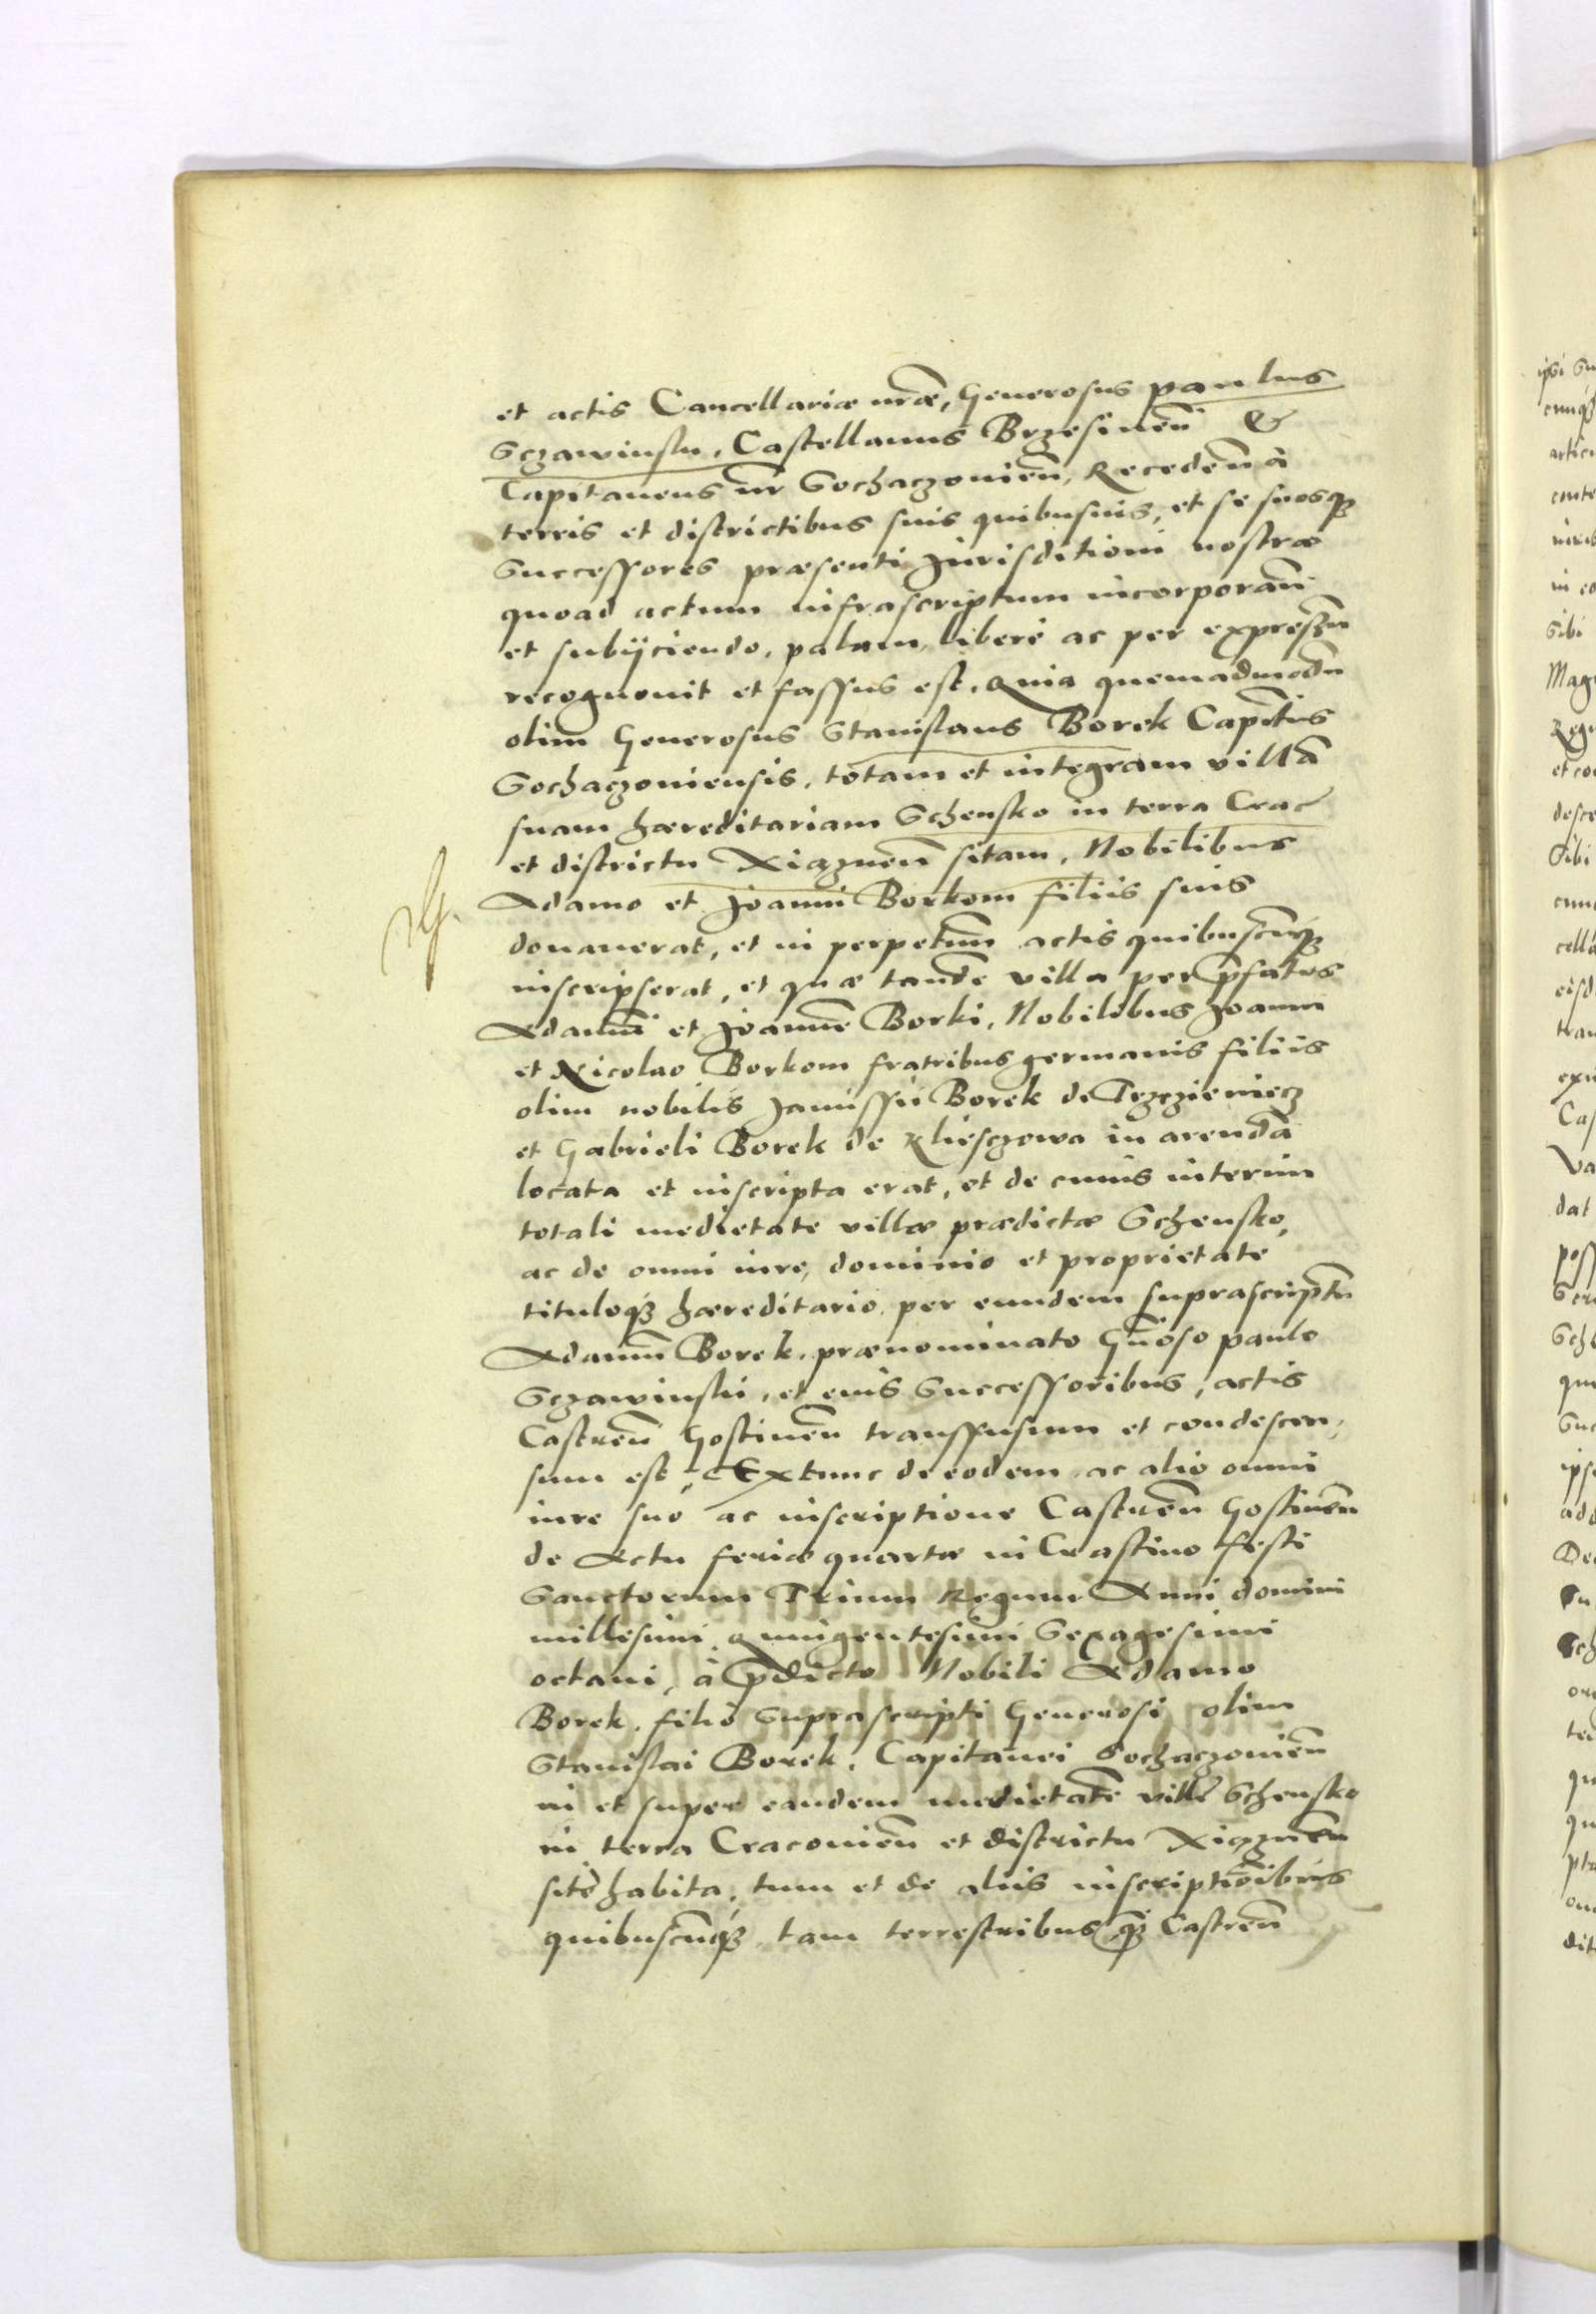 et actis Cancellariæ nr̄æ, Generosus paulus
Sczawinski, Castellanus Brzesineñ &
Capitaneus nr̄ Sochaczovieñ, Recedeñ à
terris et districtibus suis quibusuis, et se suosq3
Successores præsenti Jurisditioni nostræ
quoad actum infrascriptum incorporañ
et subijciendo, palam, liberè ac per expressũ
recognouit et fassus est, Quia quemadmodũ
olim Generosus Stanislaus Borek Capit̃us
Sochaczoviensis, totam et integram villã
suam hæreditariam Schensko in terra Crac̃
et districtu Xiązneñ sitam, Nobilibus
Adamo et Joanni Borkom filiis suis
donauerat, et in perpetuũ actis quibuscũq3
inscripserat, et quæ tandẽ villa per p̃fatos
Adamũ et Joannẽ Borki, Nobilibus Joanni
et Nicolao Borkom fratribus germanis filiis
olim nobilis Janussii Borek de Trzczieniecz
et Gabrieli Borek de Khlesczowa in arendã
locata et inscripta erat, et de cuius interim
totali medietate villæ prædictæ Schensko,
ac de omni iure, dominio et proprietate
tituloq3 hæreditario per eundem suprascriptũ
Adamũ Borek, prænominato Gñoso paulo
Sczawinski, et eius Successoribus, actis
Castreñ Gostineñ transfusum et condescen,
sum est, Extunc de eodem ac alio omni
iure suo ac inscriptione Castreñ Gostineñ
de Actu feriæ quartæ in Crastino festi
Sanctorum Trium Regum Anni domini
millesimi quingentesimi Sexagesimi
octaui, à p̃dicto Nobili Adamo
Borek, filio Suprascripti Generosi olim
Stanislai Borek, Capitanei Sochaczovieñ
in et super eandem medietatẽ villę Schensko
in terra Cracovieñ et districtu Xiązneñ
sitę habita, tum et de aliis inscriptiõibus
quibuscũq3 tam terrestribus q̃3 Castreñ